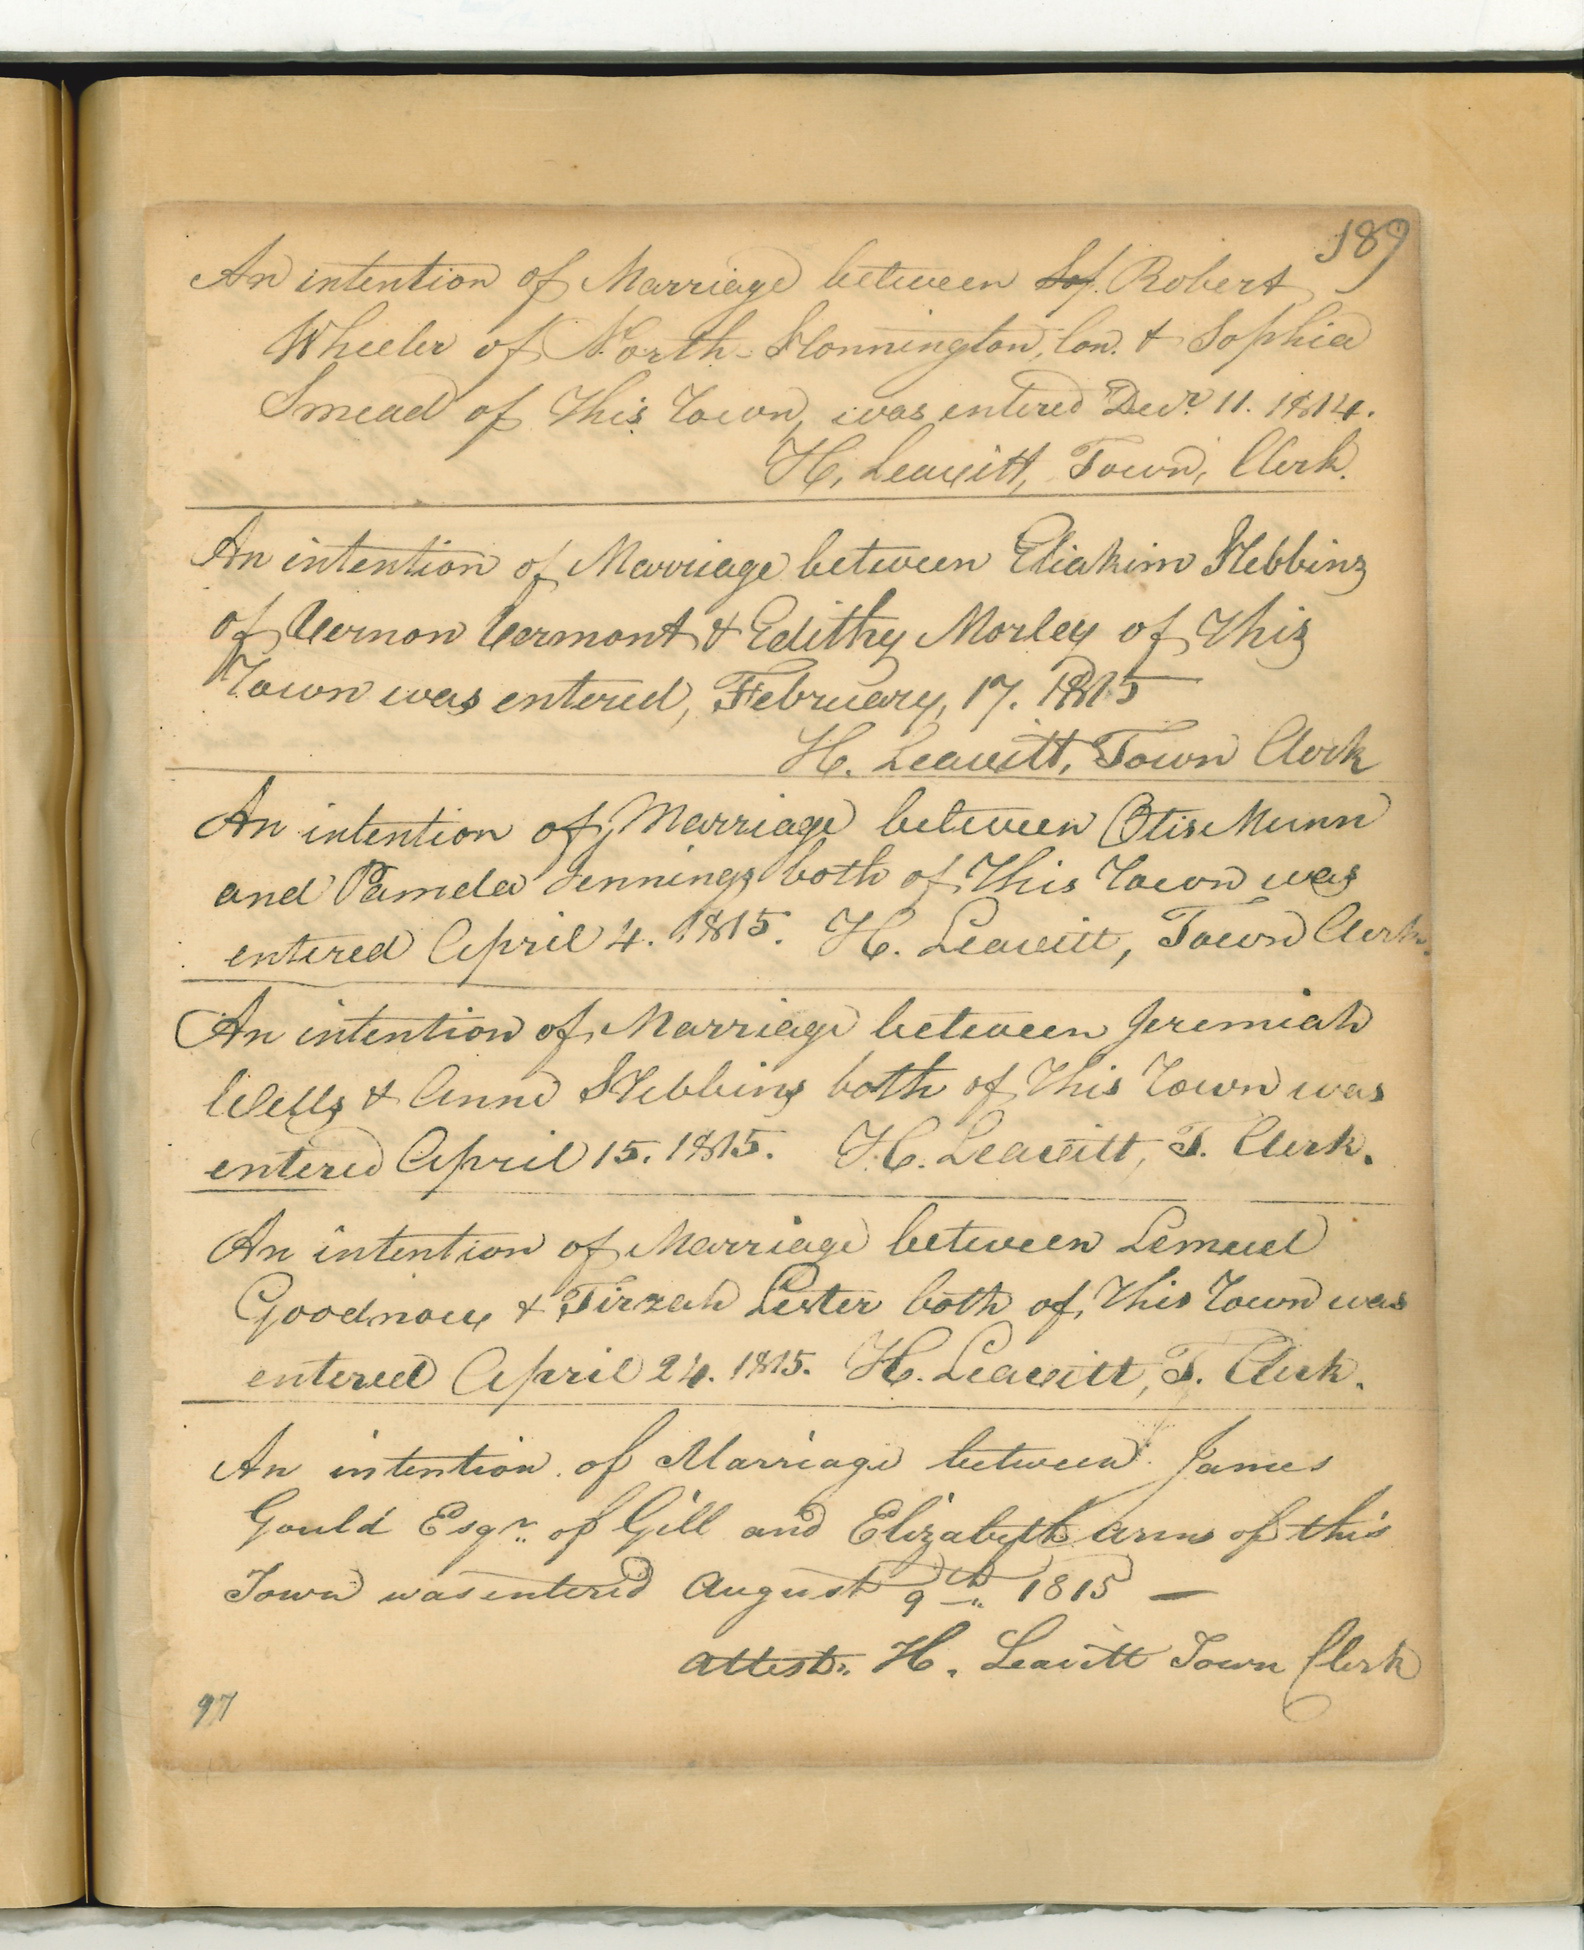 189
An intention of Marriage between Sof. Robert
Wheeler of North-Stonnington, Con. & Sophia
Smead of This Town, was entered Decr. 11. 1814.
H. Leavitt, Town, Clerk.
An intention of Marriage between Eliakim Stebbins
of Vernon Vermont & Edithy Morley of This
Town was entered, February, 17. 1815
H. Leavitt, Town Clerk
An intention of Marriage between Otis Munn
and Pamela Jennings both of This Town was
entered April 4. 1815. H. Leavitt, Town Clerk.
An intention of Marriage between Jeremiah
Wells & Anna Stebbins both of This Town was
entered April 15. 1815. H. Leavitt, T. Clerk.
An intention of Marriage between Lemuel
Goodnow & Tirzah Lester both of This Town was
entered April 24. 1815. H. Leavitt, T. Clerk.
An intention of Marriage between James
Gould Esqr. of Gill and Elizabeth Arms of this
Town was entered August 9th 1815 —
attest. H. Leavitt Town Clerk
97